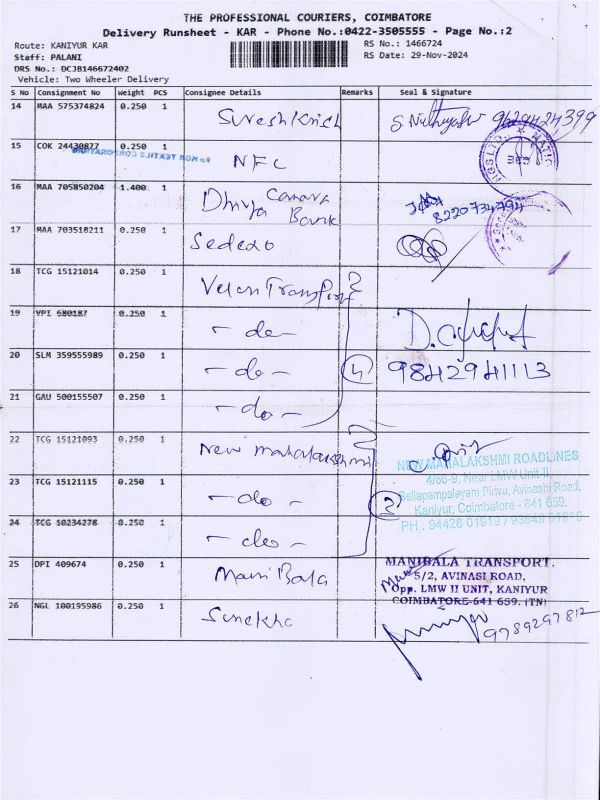 THE PROFESSIONAL COURIERS, COIMBATORE
Delivery Runsheet - KAR - Phone No.:0422-3505555 - Page No.:2
Route: KANIYUR KAR
RS No.: 1466724
Staff: PALANI
RS Date: 29-Nov-2024
DRS No.: DCJB146672402
Vehicle: Two Wheeler Delivery
S No Consignment No Weight PCS Consignee Details Remarks Seal & Signature
14 MAA 575374824 0.250 1 9629424399
15 COK 24430877 0.250 1 NFC
For NGR TEXTILE CORPORATION
16 MAA 705850204 1.400 1 Dhivya Canara Bank 8220734794
17 MAA 703518211 0.250 1 Sedexo
18 TCG 15121014 0.250 1 Velan Transport
19 VPI 680187 0.250 1 - do -
20 SLM 359555989 0.250 1 - do - 4 9842941113
21 GAU 500155507 0.250 1 - do -
22 TCG 15121093 0.250 1 New mahalakshmi
NEW MAHALAKSHMI ROADLINES
4/86-9, Near LMW Unit II
23 TCG 15121115 0.250 1 - do - 3
Sellapampalayam Pirivu, Avinashi Road,
Kaniyur, Coimbatore - 641 659.
24 TCG 10234278 0.250 1 - do -
PH : 94426 01919 /
25 DPI 409674 0.250 1 Mani Bala
MANIBALA TRANSPORT,
5/2, AVINASI ROAD,
Opp. LMW II UNIT, KANIYUR
COIMBATORE-641 659. (TN)
26 NGL 100195986 0.250 1 9789297812